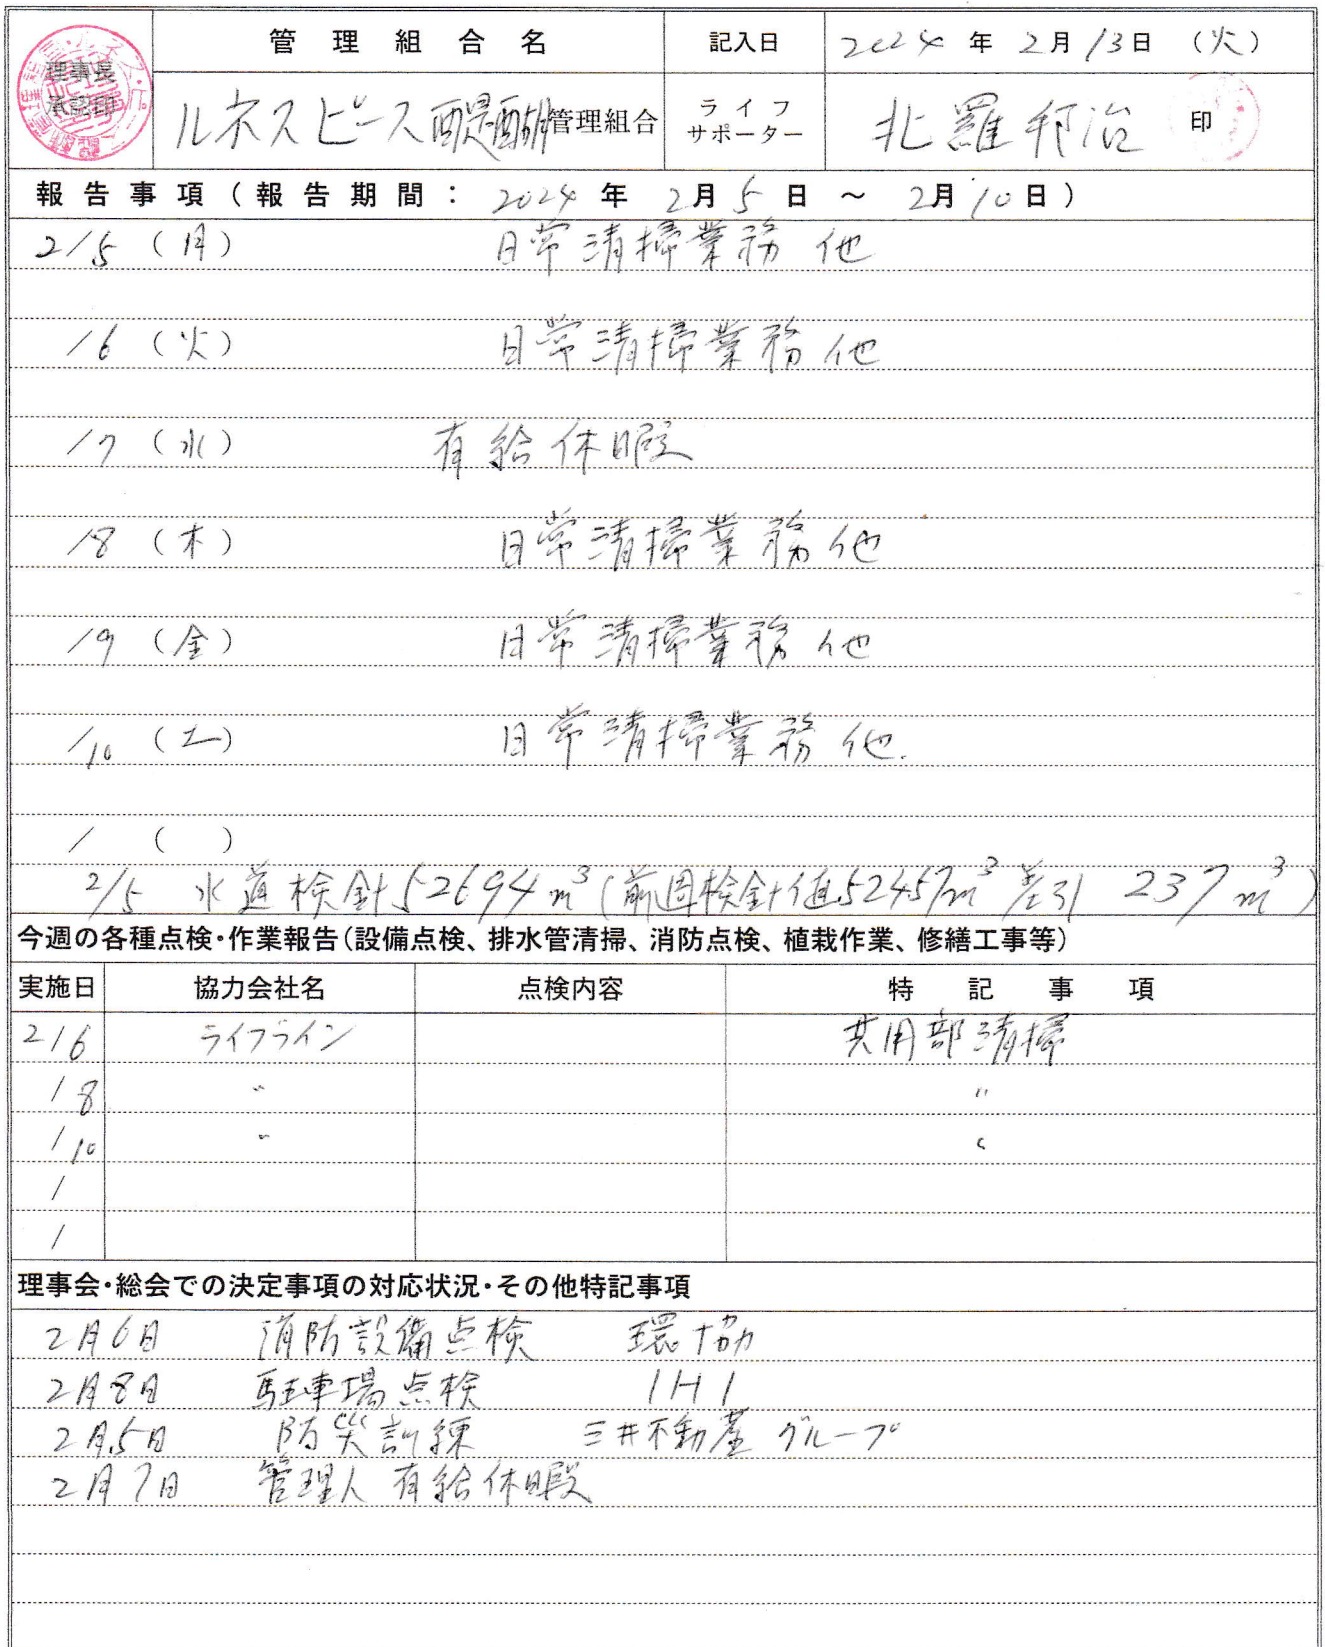 管理組合名 記入日 2024年2月13日（火）
理事長
承認印
ルネスピース醍醐管理組合 ライフサポーター 北羅邦治 印
報告事項（報告期間：2024年2月5日～2月10日）
2/5（月） 日常清掃業務他
/6（火） 日常清掃業務他
/7（水） 有給休暇
/8（木） 日常清掃業務他
/9（金） 日常清掃業務他
/10（土） 日常清掃業務他.
/（ ）
2/5 水道検針52694m³（前週検針値52457m³差引 237m³）
今週の各種点検・作業報告（設備点検、排水管清掃、消防点検、植栽作業、修繕工事等）
実施日 協力会社名 点検内容 特記事項
2/6 ライフライン 共用部清掃
/8 〃 〃
/10 〃 〃
/
/
理事会・総会での決定事項の対応状況・その他特記事項
2月6日 消防設備点検 環協
2月8日 駐車場点検 IHI
2月5日 防災訓練 三井不動産グループ
2月7日 管理人有給休暇